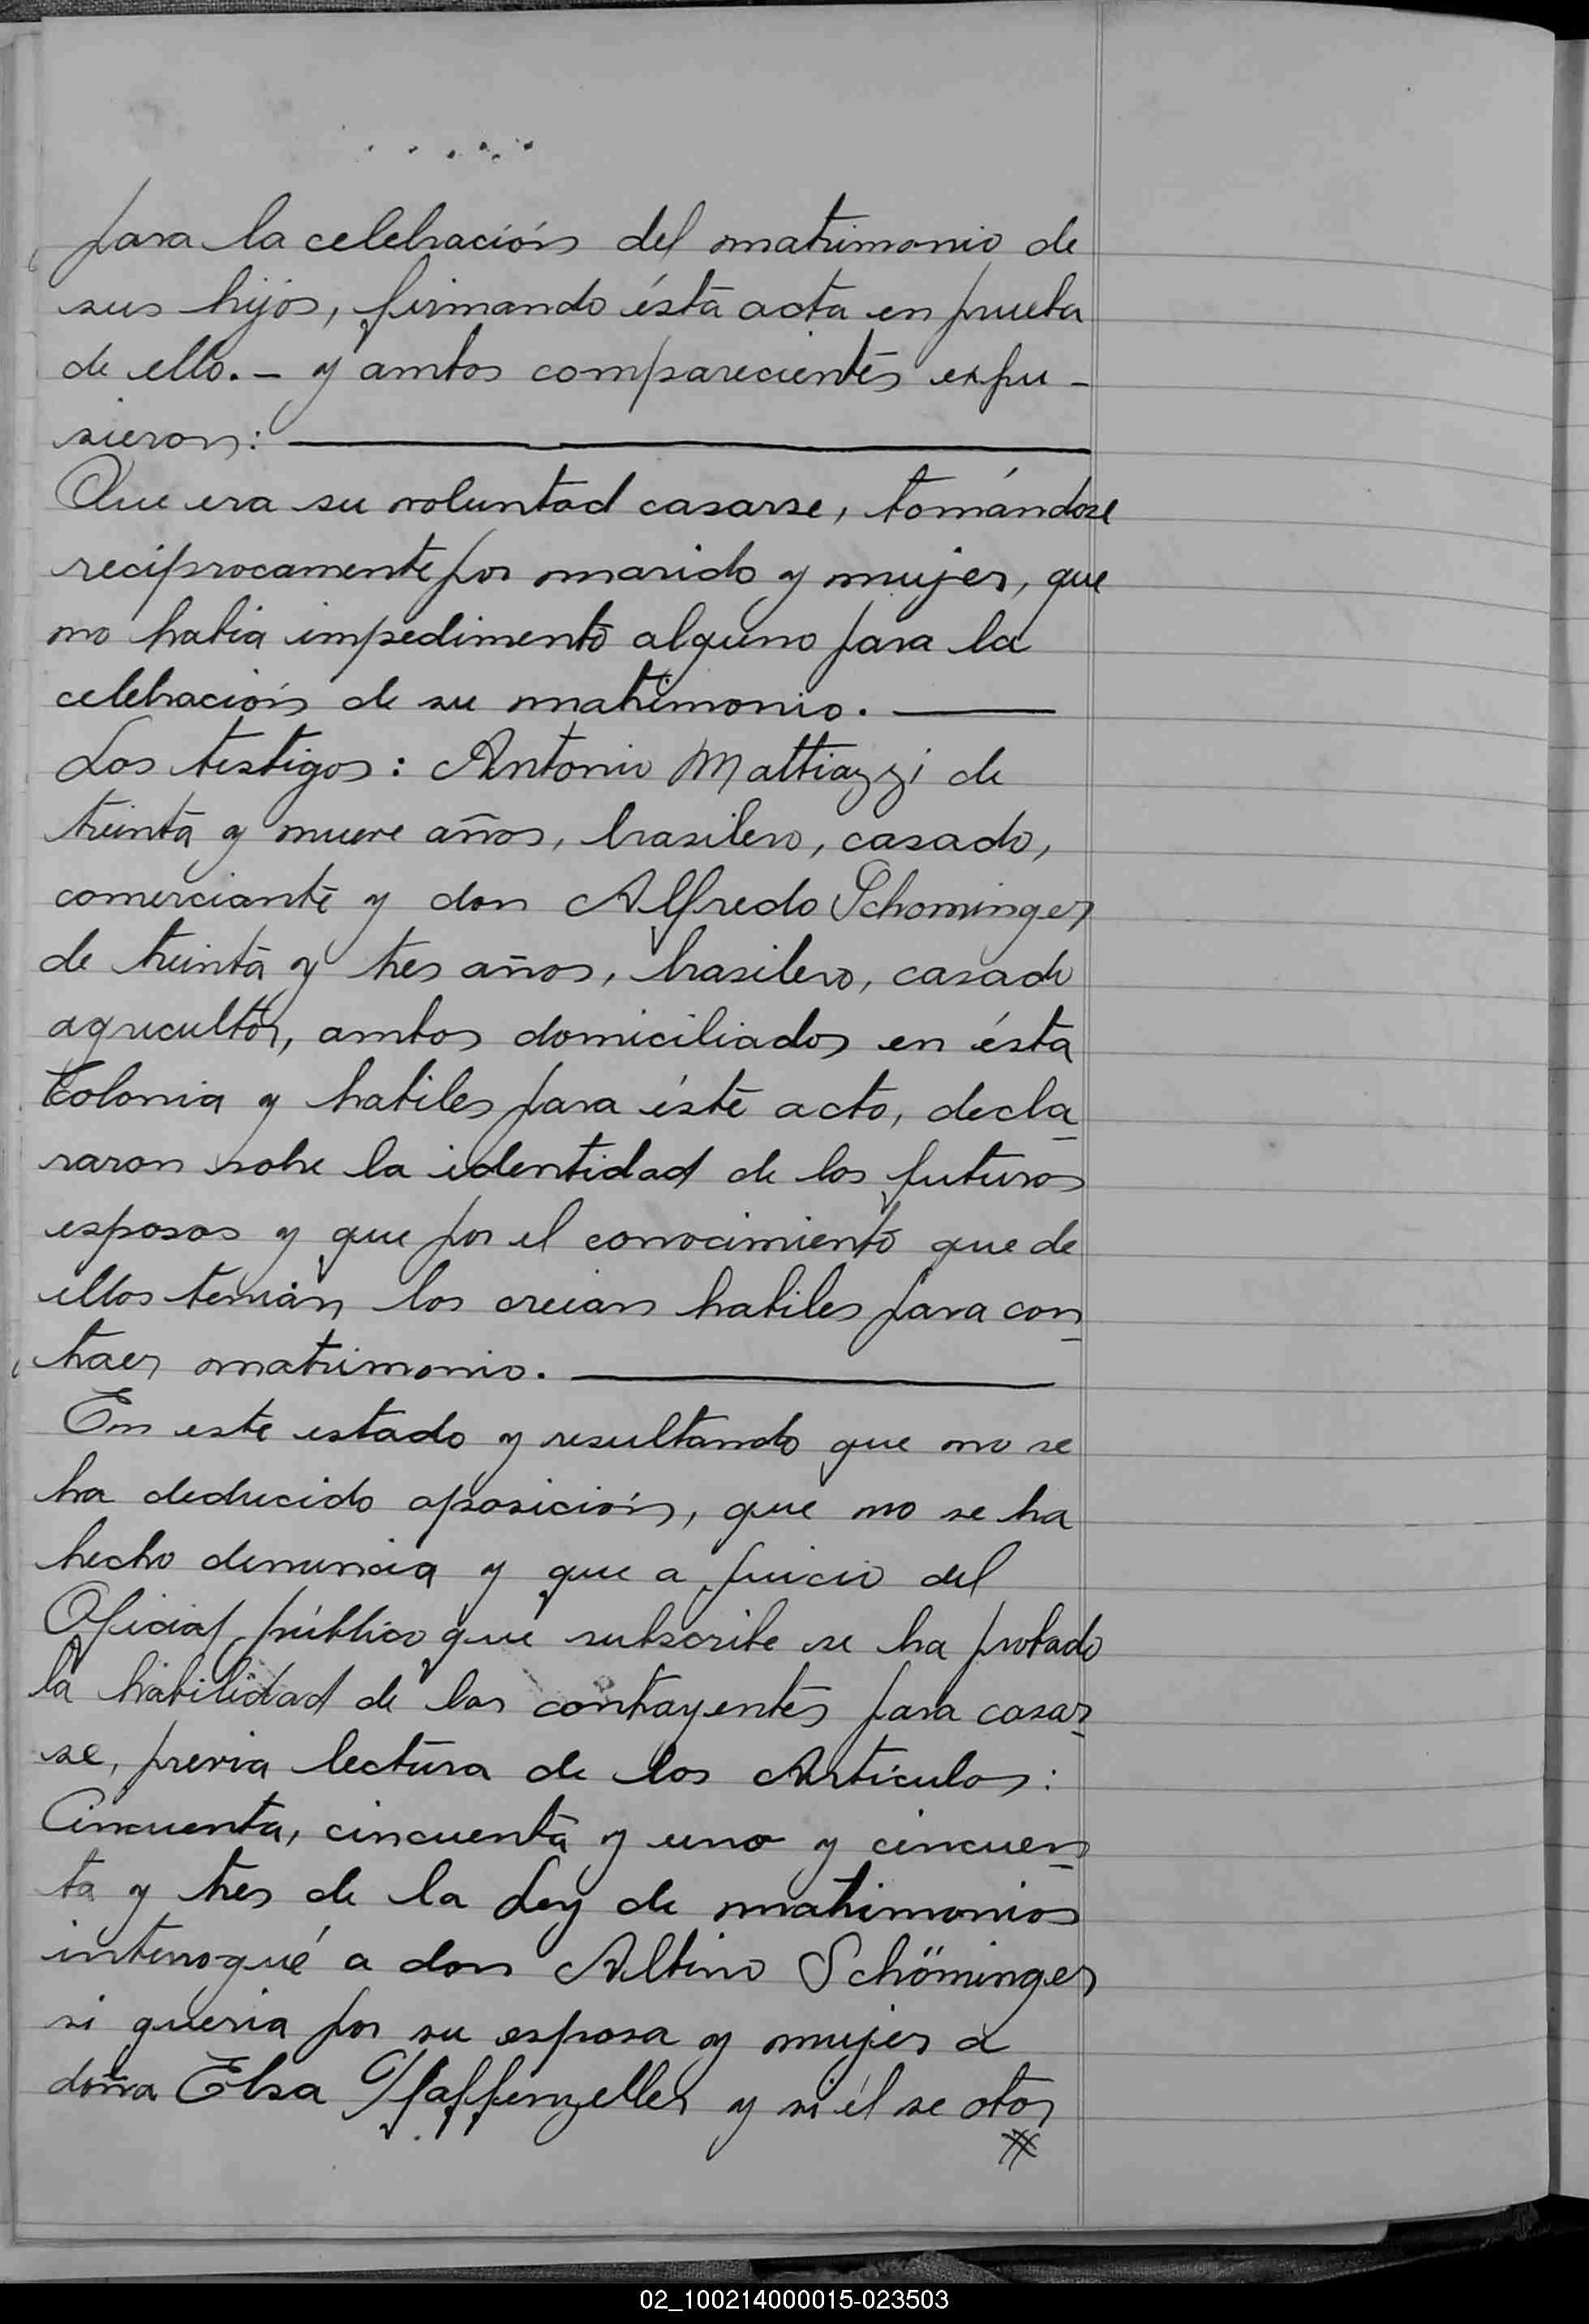 para la celebración del matrimonio de
sus hijos, firmando ésta acta en prueba
de ello. - y ambos comparecientes expu -
sieron:
Que era su voluntad casarse, tomándose
reciprocamente por marido y mujer, que
no habia impedimento alguno para la
celebración de su matrimonio.
Los testigos: Antonio Mattiazzi de
treinta y nueve años, brasilero, casado,
comerciante y don Alfredo Schominger
de treinta y tres años, brasilero, casado
agricultor, ambos domiciliados en ésta
Colonia y habiles para éste acto, decla
raron sobre la identidad de los futuros
esposos y que por el conocimiento que de
ellos tenian los creian habiles para con
traer matrimonio.
En este estado y resultando que no se
ha deducido oposición, que no se ha
hecho denuncia y que a juicio del
Oficial público que subscribe se ha probado
la habilidad de los contrayentes para casar
se, previa lectura de los Artículos:
Cincuenta, cincuenta y uno y cincuen
ta y tres de la Ley de matrimonios
interrogué a don Albino Schöminger
si queria por su esposa y mujer a
doña Elsa Pfaffenzeller y si él se otor
02_100214000015-023503